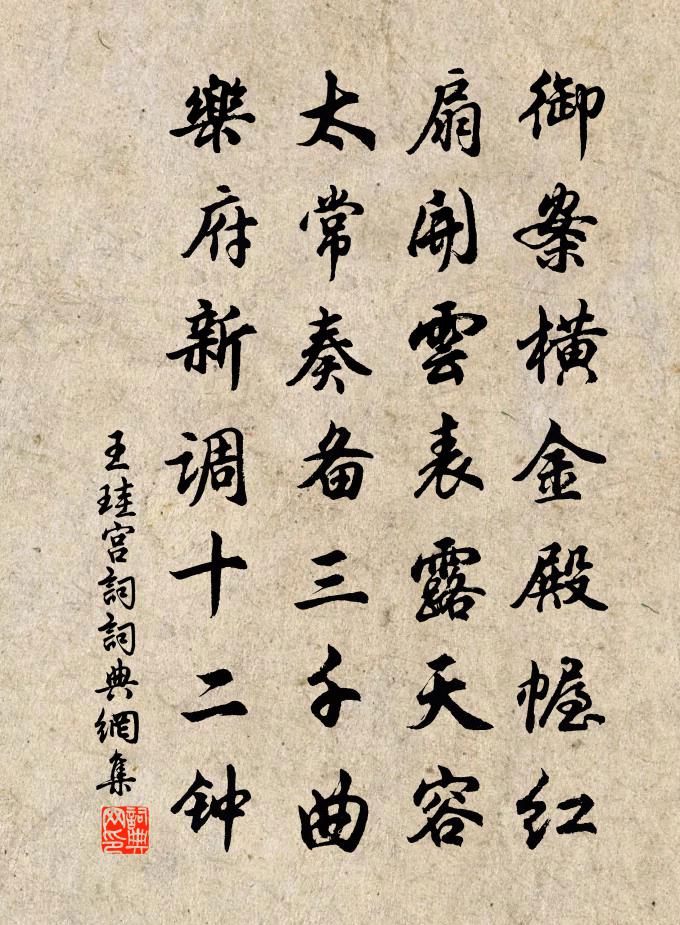 御案横金殿幄红
扇開雲表露天容
太常奏备三千曲
樂府新调十二钟
王珪宫詞詞典網集
詞典网印